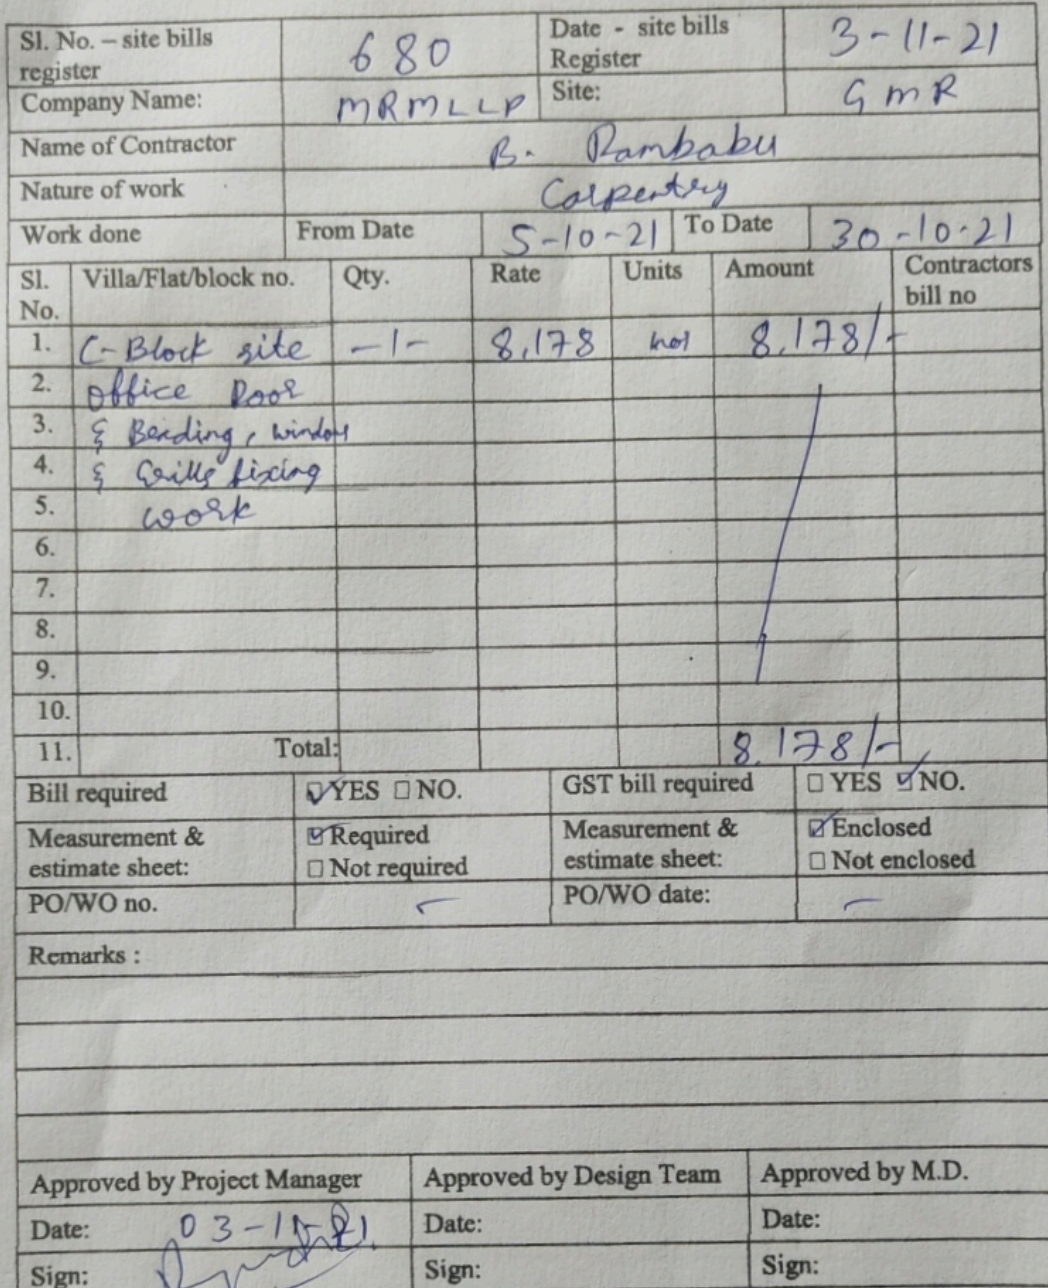 Sl. No. – site bills register 680 Date - site bills Register 3-11-21
Company Name: MRMLLP Site: GMR
Name of Contractor B. Rambabu
Nature of work Carpentry
Work done From Date 5-10-21 To Date 30-10-21
Sl. No. Villa/Flat/block no. Qty. Rate Units Amount Contractors bill no
1. C-Block site -1- 8,178 8,178/-
2. office Door
3. & Beading, window
4. & Grills fixing
5. work
6.
7.
8.
9.
10.
11. Total: 8,178/-
Bill required YES NO. GST bill required YES NO.
Measurement & estimate sheet: Required Not required Measurement & estimate sheet: Enclosed Not enclosed
PO/WO no. PO/WO date:
Remarks :
Approved by Project Manager Approved by Design Team Approved by M.D.
Date: 03-11-21 Date: Date:
Sign: Sign: Sign: